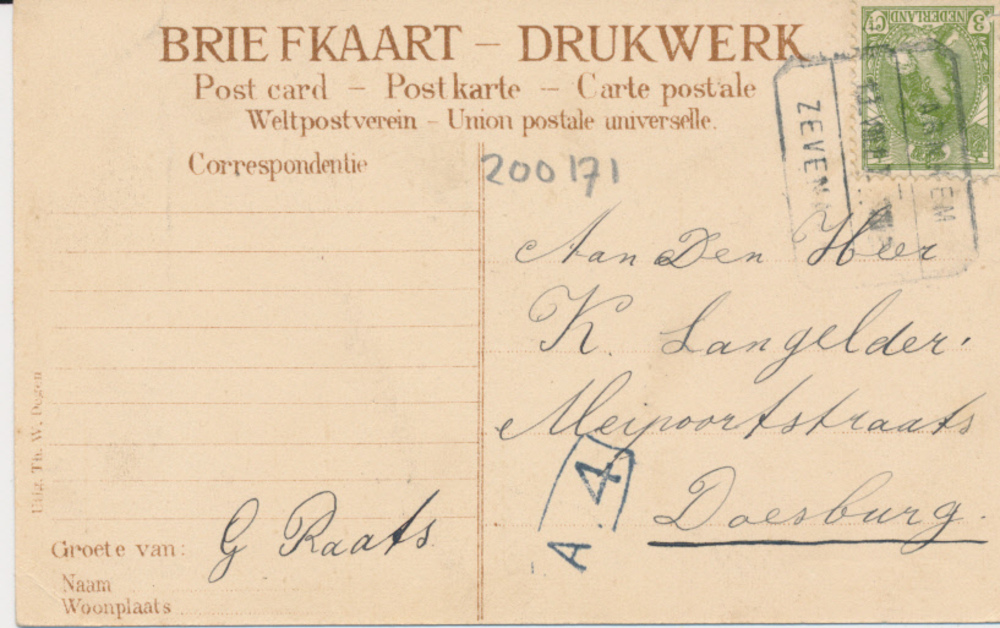 BRIEFKAART – DRUKWERK
Post card – Postkarte – Carte postale
Weltpostverein – Union postale universelle.
Correspondentie
200171
NEDERLAND
3 Ct
ARNHEM
ZEVEN
Aan Den Heer
K. Langelder.
Meipoortstraats
Doesburg.
A. 4
Uitg. Th. W. Degen
Groete van: G Raats
Naam
Woonplaats